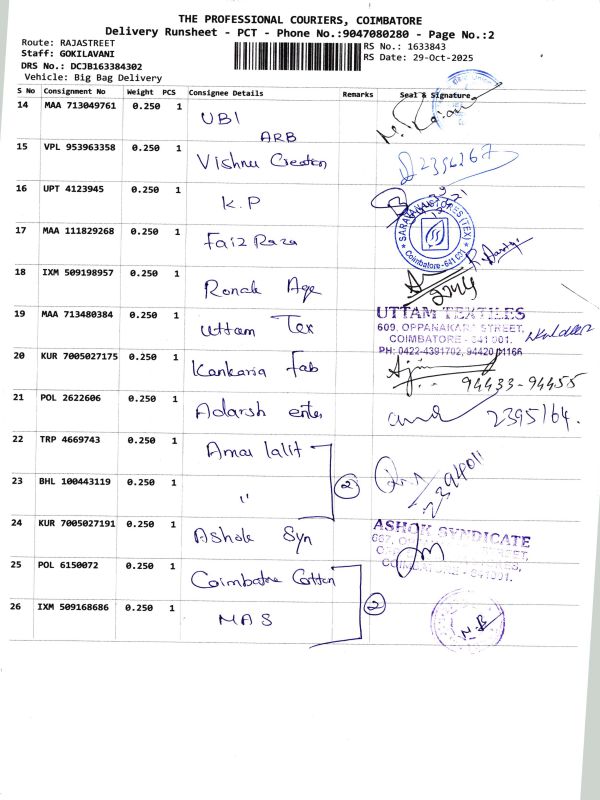 THE PROFESSIONAL COURIERS, COIMBATORE
Delivery Runsheet - PCT - Phone No.:9047080280 - Page No.:2
Route: RAJASTREET
RS No.: 1633843
Staff: GOKILAVANI
RS Date: 29-Oct-2025
DRS No.: DCJB163384302
Vehicle: Big Bag Delivery
S No Consignment No Weight PCS Consignee Details Remarks Seal & Signature
14 MAA 713049761 0.250 1 UBI
ARB
15 VPL 953963358 0.250 1 Vishnu Creation 2396267
16 UPT 4123945 0.250 1 K.P
17 MAA 111829268 0.250 1 Faiz Raza
SARAVANA STORES (TEX)
Coimbatore - 641 001
18 IXM 509198957 0.250 1 Ronak Age
19 MAA 713480384 0.250 1 Uttam Tex
UTTAM TEXTILES
609, OPPANAKARA STREET,
COIMBATORE - 641 001.
PH: 0422-4391702, 94420 01166
20 KUR 7005027175 0.250 1 Kankaria Fab 94433-94455
21 POL 2622606 0.250 1 Adarsh enter 2395164.
22 TRP 4669743 0.250 1 Amar lalit
23 BHL 100443119 0.250 1 " 2 2394011
24 KUR 7005027191 0.250 1 Ashok Syn
ASHOK SYNDICATE
STREET,
COIMBATORE - 641001.
25 POL 6150072 0.250 1 Coimbatore Cotton
26 IXM 509168686 0.250 1 MAS 2
N.B